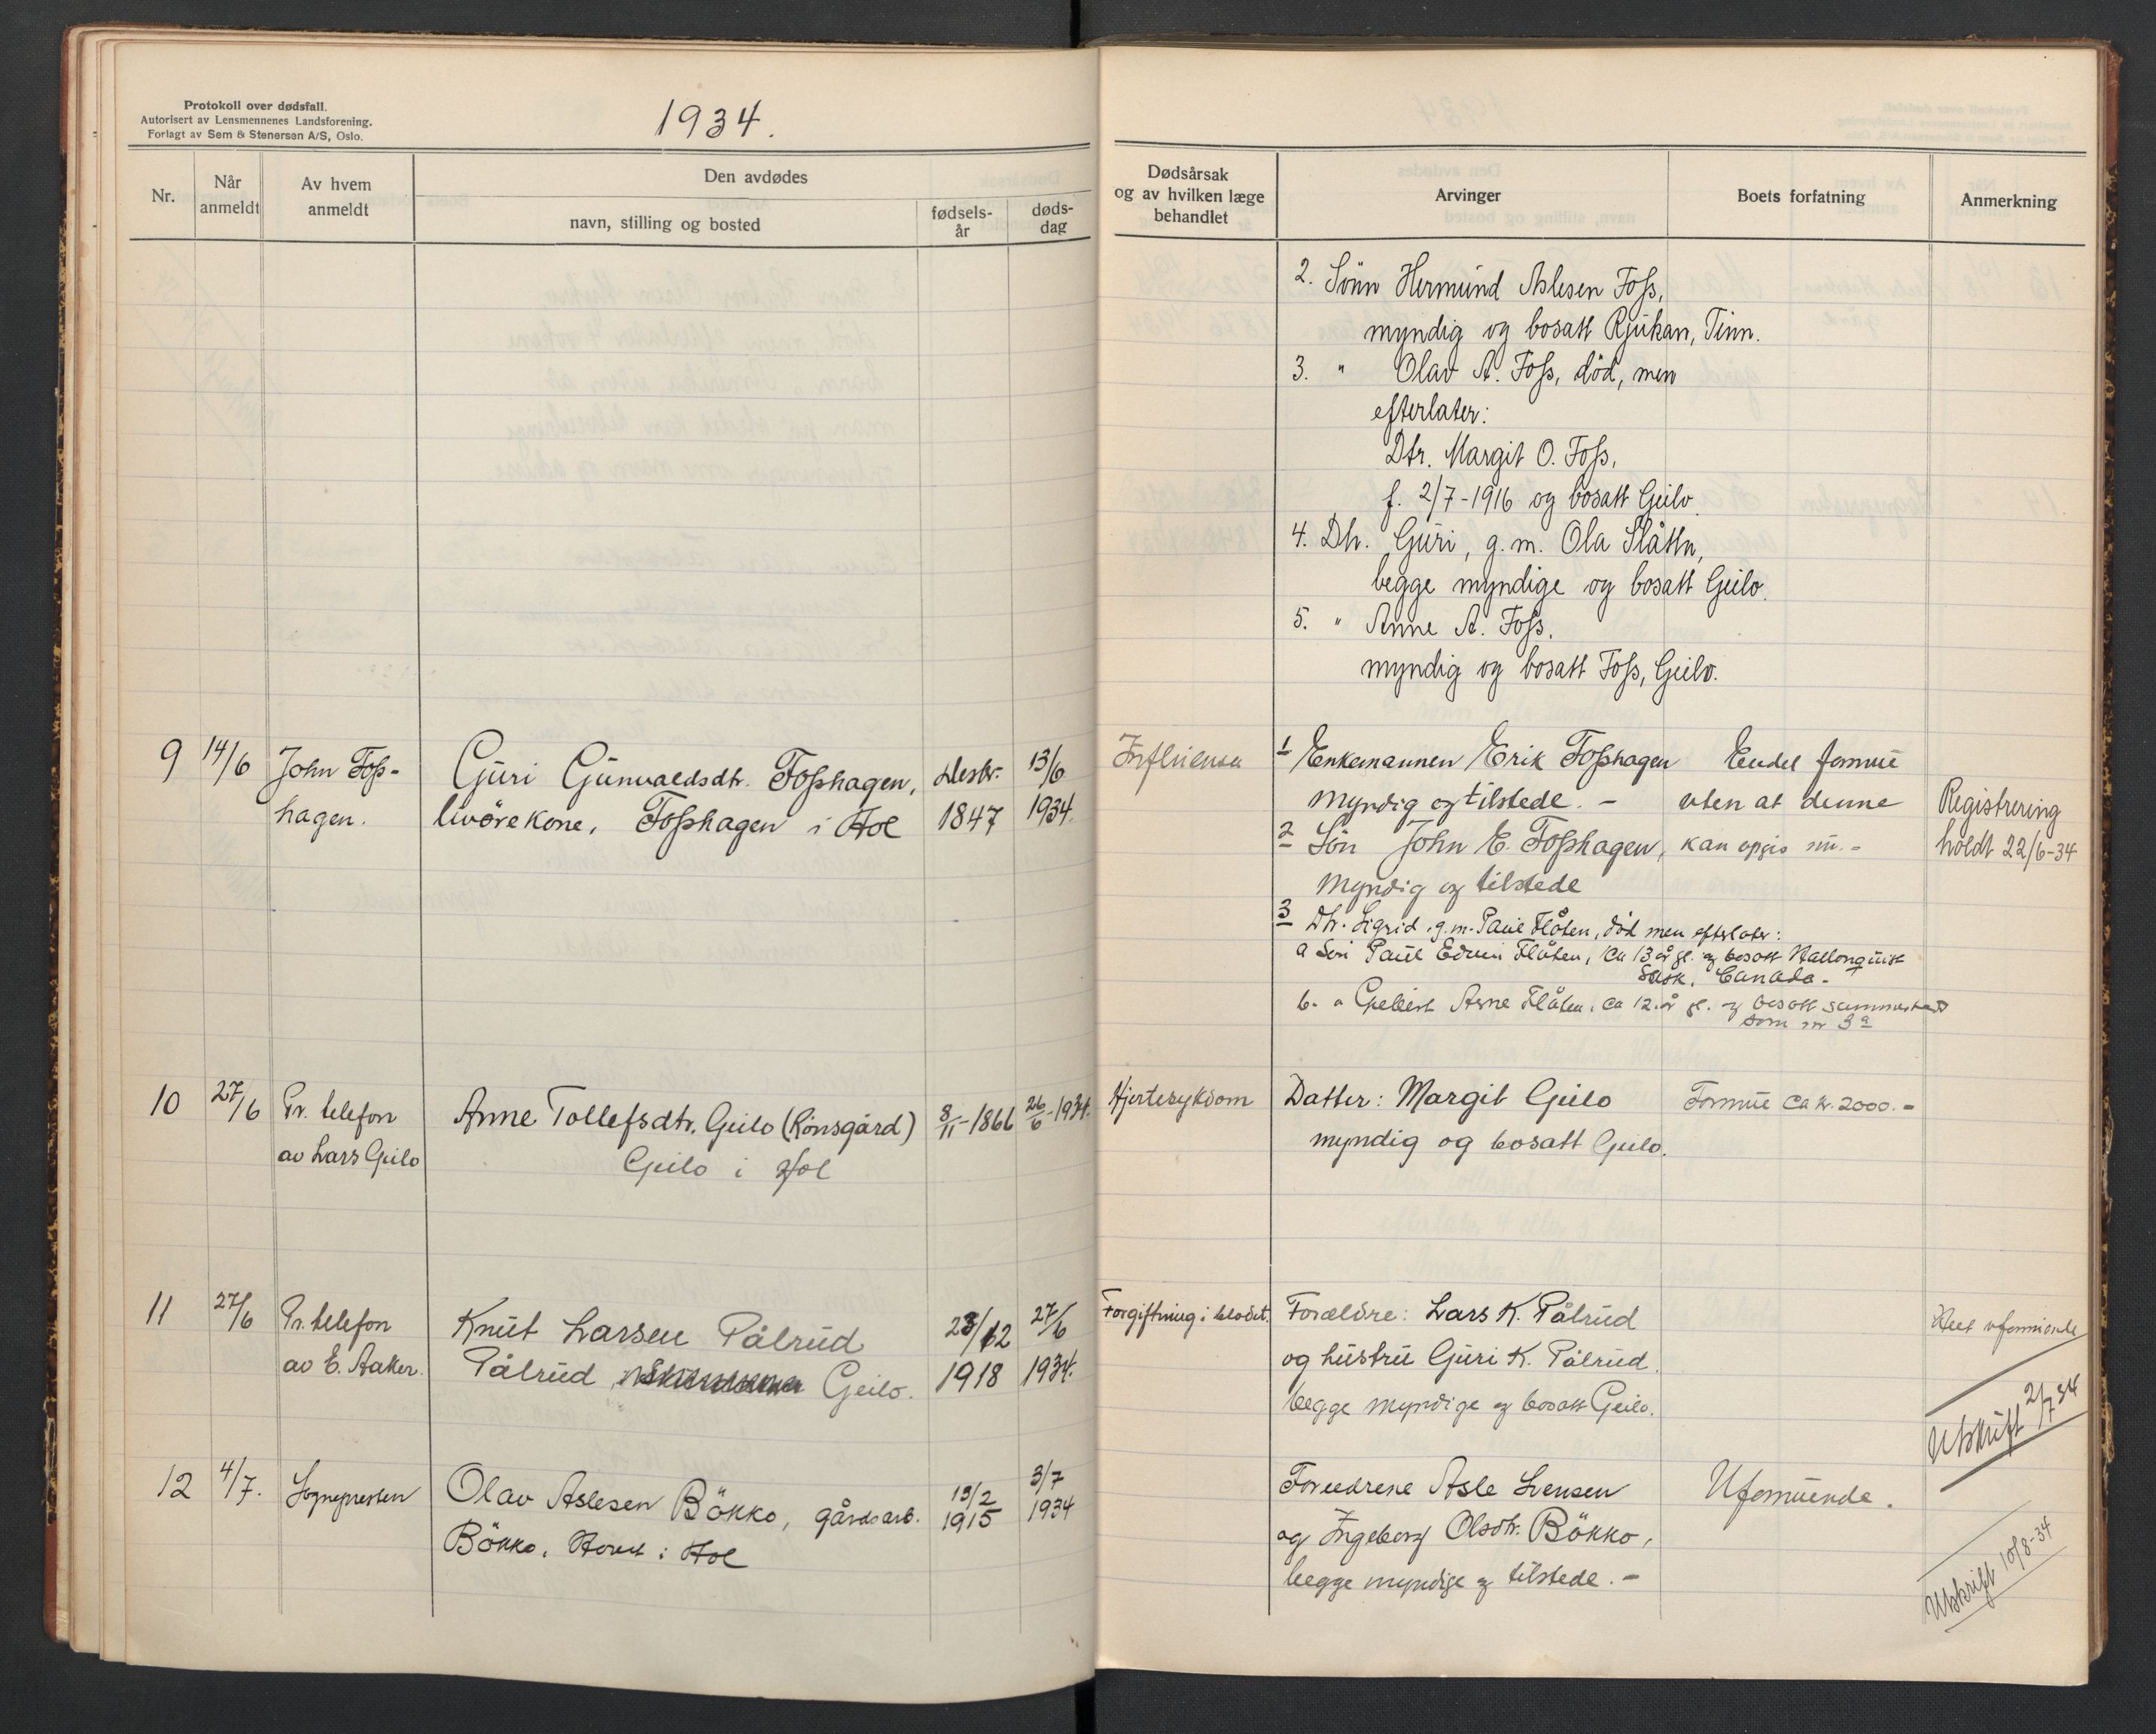 Protokoll over dødsfall.
Autorisert av Lensmennenes Landsforening.
Forlagt av Sem & Stenersen A/S, Oslo.
1934.
Nr.
Når
anmeldt
Av hvem
anmeldt
Den avdødes
navn, stilling og bosted
fødsels-
år
døds-
dag
Dødsårsak
og av hvilken læge
behandlet
Arvinger
Boets forfatning
Anmerkning
2. Sönn Hermund Aslesen Foss,
myndig og bosatt Rjukan, Tinn.
3. " Olav A. Foss, död, men
efterlater:
Dtr. Margit O. Foss,
f. 2/7-1916 og bosatt Geilo.
4. Dtr. Guri, g.m. Ola Slåttn,
begge myndige og bosatt Geilo.
5. " Anne A. Foss,
myndig og bosatt Foss, Geilo.
9 14/6 John Foss-
hagen.
Guri Gunvaldsdtr. Fosshagen,
livörekone, Fosshagen i Hol
1847
13/6
1934.
Influensa
1 Enkemannen Erik Fosshagen
myndig og tilstede. -
2 Sön John E. Fosshagen,
myndig og tilstede
3 Dtr. Sigrid, g.m. Paul Flåten, död men efterlater:
a Sön Paul Edvin Flåten, ca 13 år gl. og bosatt Hallonquist
Sask. Canada.-
b. " Arne Flåten, ca 12 år gl. og bosatt sammested
som nr 3a
Endel formue
uten at denne
kan opgis nu.-
Registrering
holdt 22/6-34
10 27/6 Pr. telefon
av Lars Geilo
Anne Tollefsdtr. Geilo (Rönsgård)
Geilo i Hol
8/11-1866
26/6-1934.
Hjertesykdom
Datter: Margit Geilo
myndig og bosatt Geilo.
Formue ca kr. 2000.-
11 27/6 Pr. telefon
av E. Aaker.
Knut Larsen Pålrud
Pålrud, Geilo.
23/12
1918
27/6
1934.
Forgiftning i blodet.
Forældre: Lars K. Pålrud
og hustru Guri K. Pålrud.
begge myndige og bosatt Geilo.
Helt uformuende
Utskrift 2/7 34
12 4/7. Sognepresten
Olav Aslesen Bökko, gårdsarb.
Bökko, Hovet i Hol
13/2
1915
3/7
1934
Foreldrene Asle Svensen
og Ingeborg Olsdtr. Bökko,
begge myndige og tilstede.-
Uformuende.
Utskrift 10/8-34